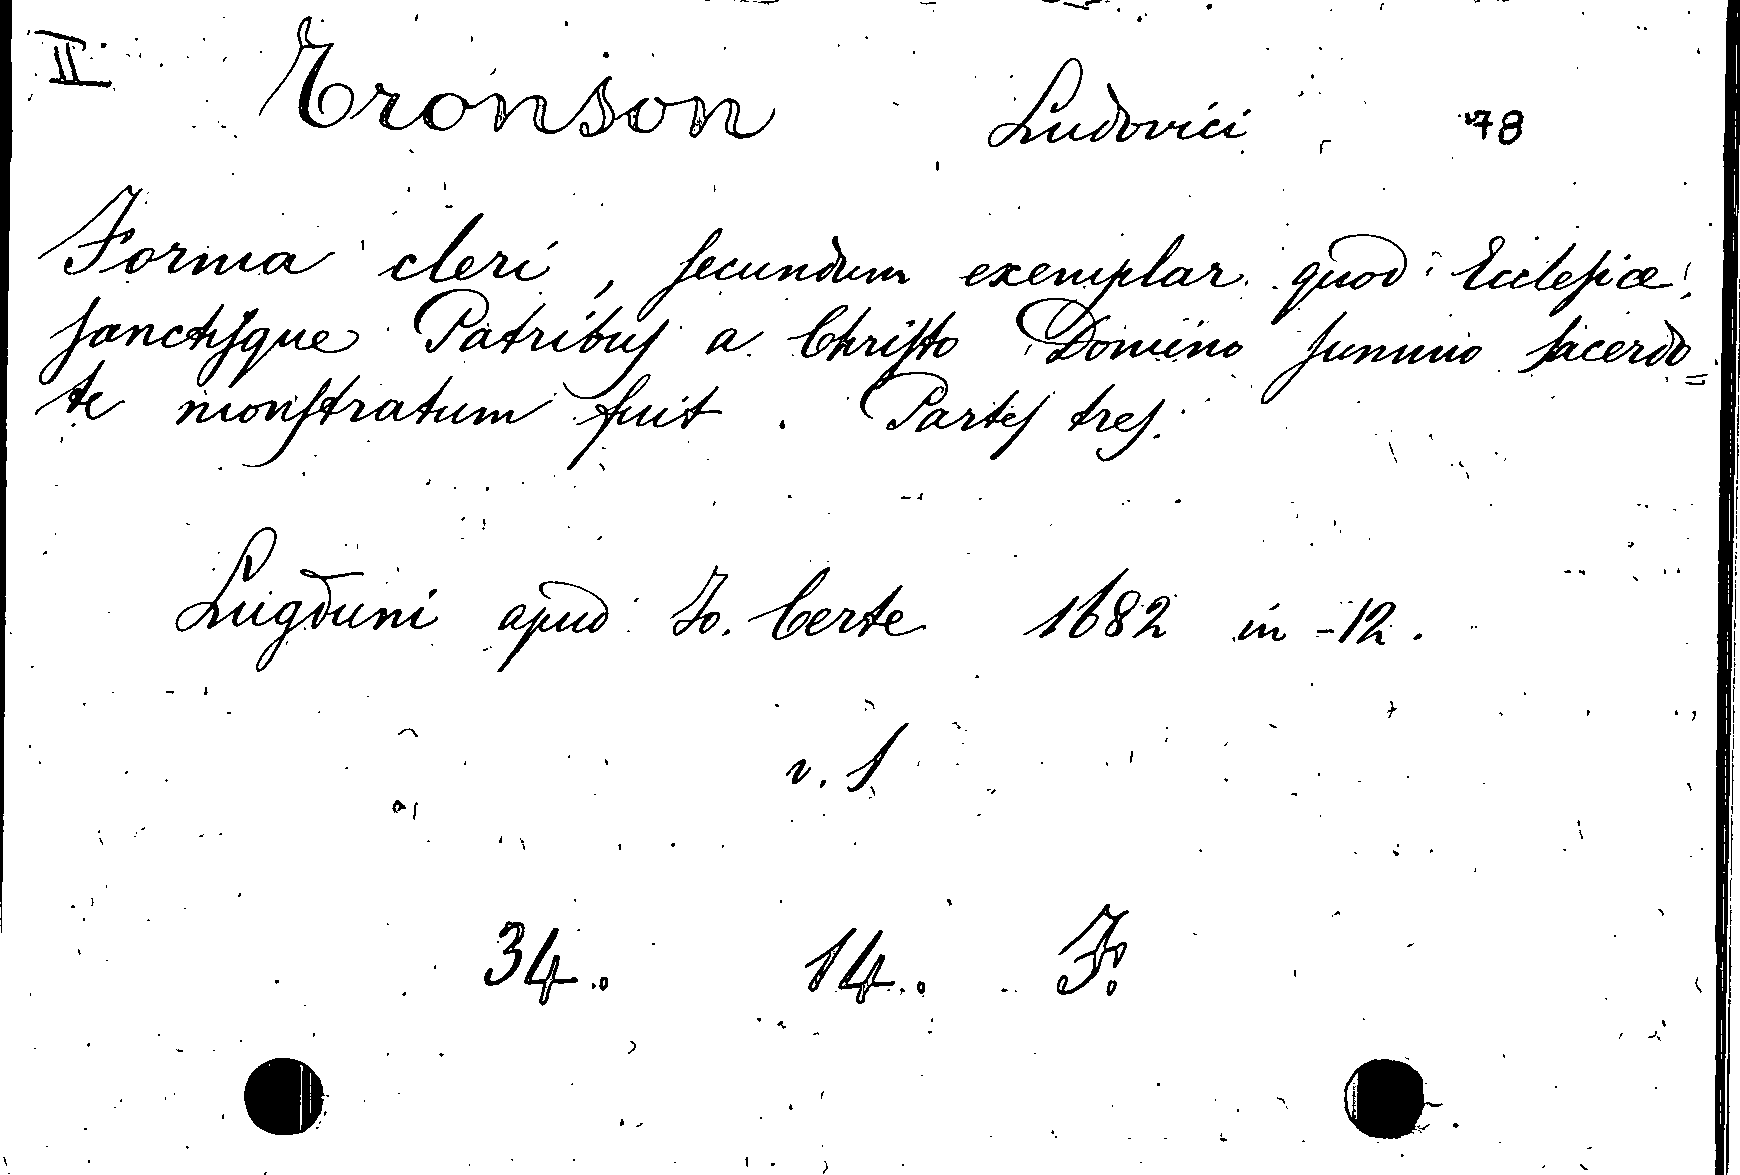 II Tronson Ludovici 78
Forma cleri, secundum exemplar quod Ecclesiæ
sanctisque Patribus a Christo Domino summo sacerdo=
te monstratum fuit. Partes tres.
Lugduni apud Jo. Certe 1682 in-12.
v. 1
34. 14. F.